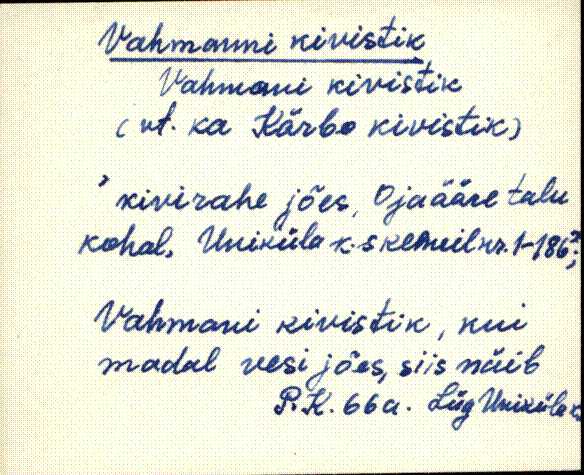 Vahmanni kivistik
Vahmani kivistik
(vt. ka Kärbo kivistik)
kivirahe jões, Ojaääre talu
kohal, Uniküla k. skemeil nr. 1-186;
Vahmani kivistik, kui
madal vesi jões, siis näib
P.K. 66a. Lüg Uniküla k.